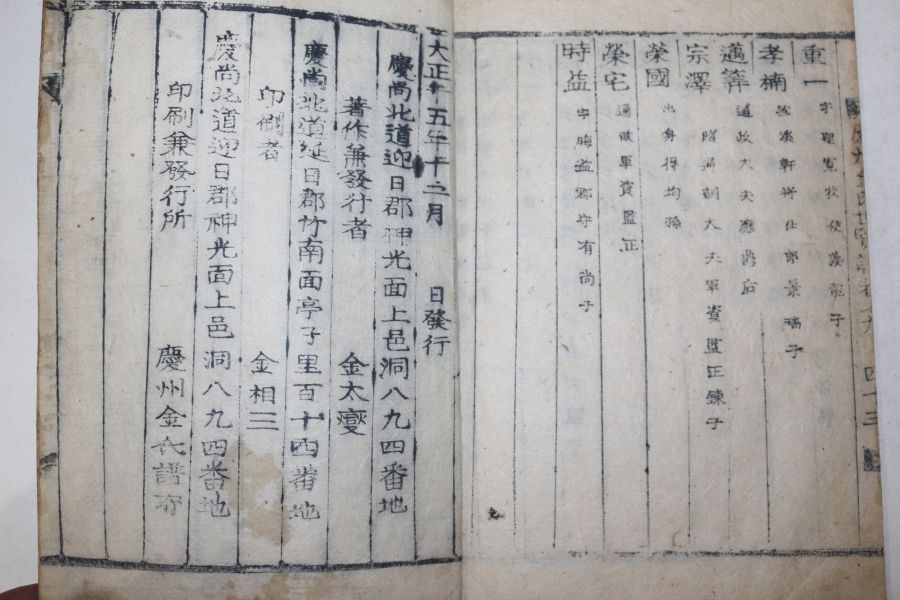 重一 字聖寬牧使凌龍子
孝楠 將仕郎景瑞子
邁筭 通政大夫應爵后
宗澤 階通訓大夫軍資監正鍊子
榮國 出身得均孫
榮宅 通政軍資監正
時益 字晦益郡守有尚子
大正十五年十二月 日發行
慶尚北道迎日郡神光面上邑洞八九四番地
著作兼發行者 金太燮
慶尚北道延日郡竹南面亭子里百十四番地
印刷者 金相三
慶尚北道迎日郡神光面上邑洞八九四番地
印刷兼發行所 慶州金氏譜所
四十三